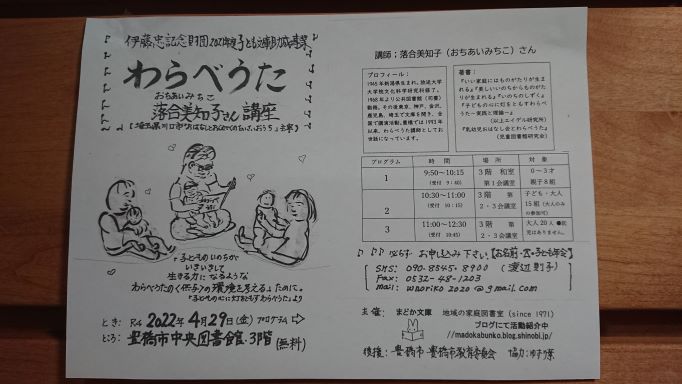 伊藤忠記念財団2021年度子ども文庫助成事業
わらべうた
おちあいみちこ
落合美知子さん講座
『子どものいのちが
いきいきして
生きる力になるような
わらべうたのく伝承の環境を考える』ために。
「子どもの心に灯をともすわらべうた」より
とき: R4 2022年4月29日(金) プログラム→
ところ: 豊橋市中央図書館・3階(無料)
講師；落合美知子（おちあいみちこ）さん
プロフィール：
1945年新潟県生まれ。放送大学
大学院文化科学研究科修了。
1968年より公共図書館（司書）
勤務。その後東京、神戸、金沢、
鹿児島、埼玉で文庫を開き、全
国で講演活動。豊橋では1993年
以来、わらべうた講師としてお
世話になっています。
著書：
『いい家庭にはものがたりが生ま
れる』『美しいいのちからものがた
りが生まれる』『いのちのしずく』
『子どもの心に灯をともすわらべう
た～実践と理論～』
（以上エイデル研究所）
『乳幼児おはなし会とわらべうた』
（児童図書館研究会）
プログラム 時間 場所 対象
1 9:50～10:15 （受付 9:40） 3階 和室 第1会議室 0～3才 親子8組
2 10:30～11:00 （受付 10:15） 3階 第2・3会議室 子ども・大人 15組（大人のみの参加可）
3 11:00～12:30 （受付 10:45） 3階 第2・3会議室 大人20人 ●託児はありません。
必らず お申し込み下さい。【お名前・〒・子ども年令】
SMS: 090-8545-8900 (渡辺則子)
Fax: 0532-48-1203
mail: wnoriko2020@gmail.com
主催： まどか文庫 地域の家庭図書室（since 1971）
ブログにて活動紹介中
//madokabunko.blog.shinobi.jp/
後援：豊橋市・豊橋市教育委員会